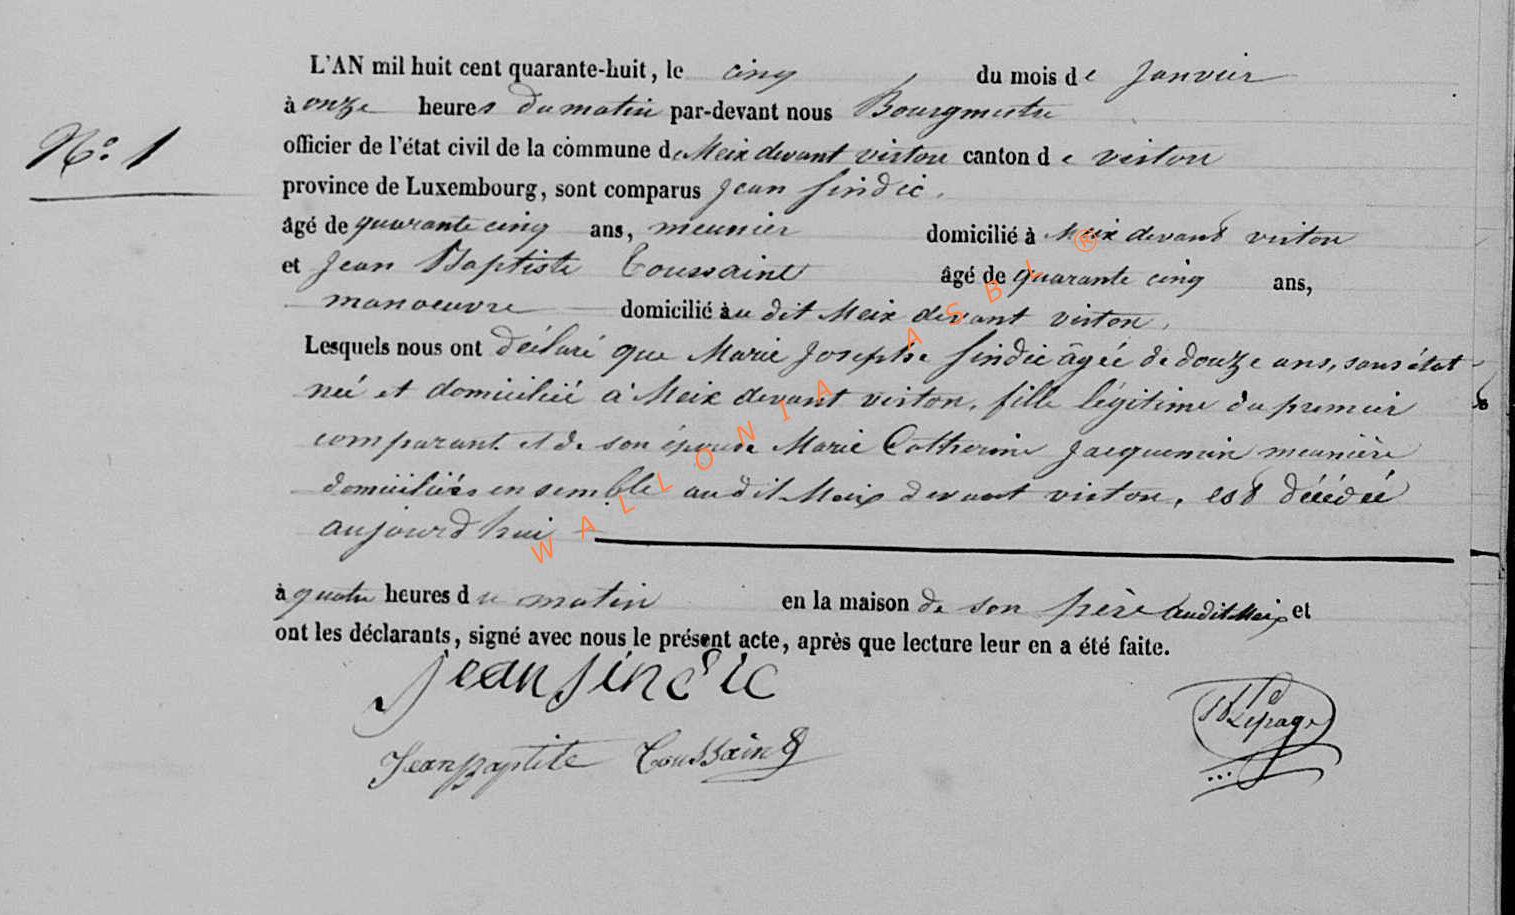 L'AN mil huit cent quarante-huit, le cinq du mois de Janvier
à onze heures du matin par-devant nous Bourgmestre
officier de l'état civil de la commune de Meix devant virton canton de virton
N.° 1
province de Luxembourg, sont comparus Jean Sindic.
âgé de quarante cinq ans, meunier domicilié à Meix devant virton
et Jean Baptiste Toussaint âgé de quarante cinq ans,
manoeuvre domicilié au dit Meix devant virton.
Lesquels nous ont déclaré que Marie Josephe Sindic âgée de douze ans, sans état
née et domiciliée à Meix devant virton, fille légitime du premier
comparant et de son épouse Marie Catherine Jacquemin meunière
domiciliés ensemble au dit Meix devant virton, est décédée
aujourd'hui
à quatre heures du matin en la maison de son père audit Meix et
ont les déclarants, signé avec nous le présent acte, après que lecture leur en a été faite.
jean Sindic
Jean baptite Toussaint
Lepage
WALLONIA ASBL ®